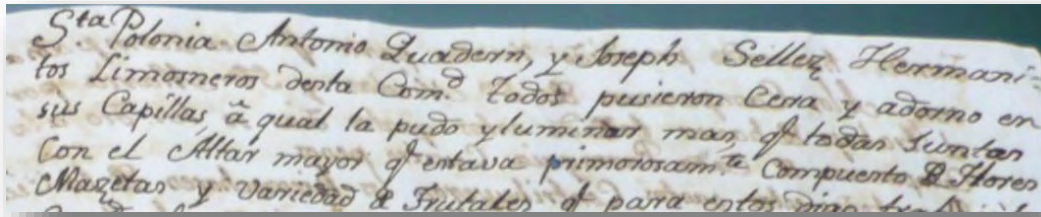 S.ta Polonia Antonio Quadern, y Joseph Sellez Hermani-
tos Limosneros desta Com.d todos pusieron Cera y adorno en
sus Capillas, â qual la pudo yluminar mas, q̃ todas Juntas
Con el Altar mayor q̃ estava primorosam.te Compuesto d Flores
Mazetas y Variedad d Frutales q̃ para estos dias